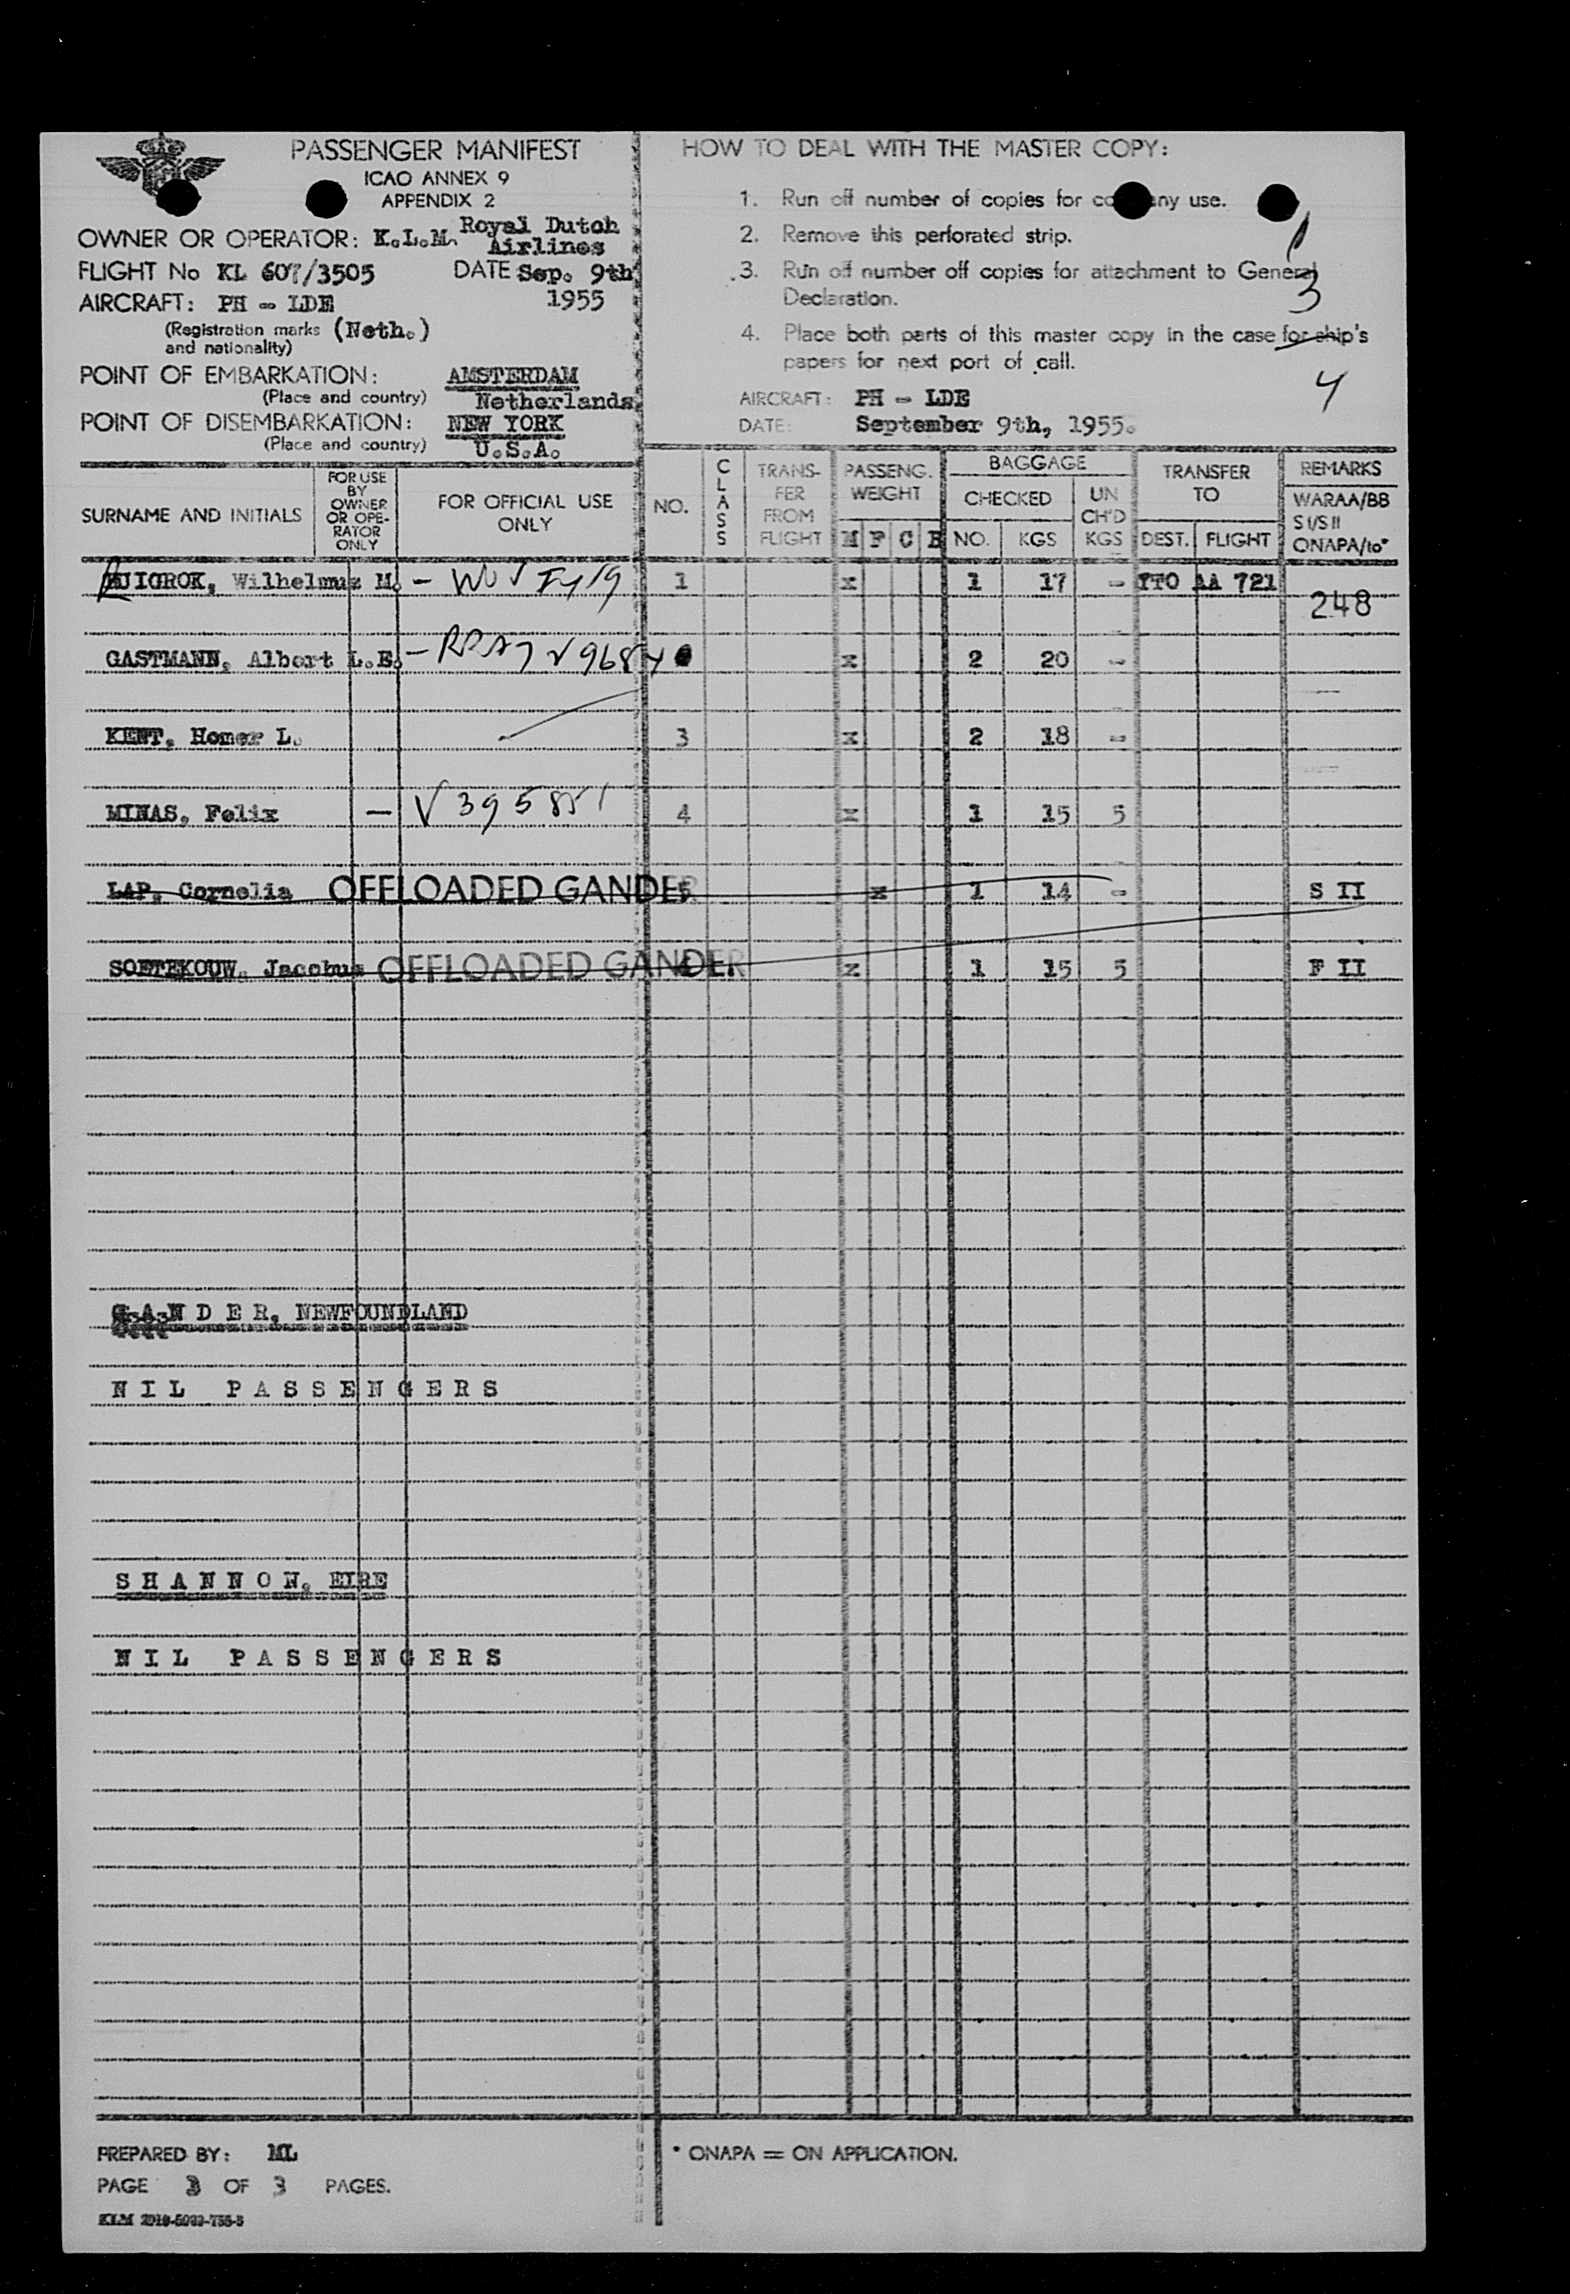 PASSENGER MANIFEST
ICAO ANNEX 9
APPENDIX 2
OWNER OR OPERATOR: K.L.M. Royal Dutch Airlines
FLIGHT No KL 607/3505 DATE Sep. 9th 1955
AIRCRAFT: PH - LDE
(Registration marks and nationality) (Neth.)
POINT OF EMBARKATION: AMSTERDAM
(Place and country) Netherlands
POINT OF DISEMBARKATION: NEW YORK
(Place and country) U.S.A.
HOW TO DEAL WITH THE MASTER COPY:
1. Run off number of copies for company use.
2. Remove this perforated strip.
3. Run off number off copies for attachment to General Declaration.
4. Place both parts of this master copy in the case for ship's papers for next port of call.
1
3
4
AIRCRAFT: PH - LDE
DATE: September 9th, 1955.
SURNAME AND INITIALS
FOR USE BY OWNER OR OPE-RATOR ONLY
FOR OFFICIAL USE ONLY
NO.
CLASS
TRANS-FER FROM FLIGHT
PASSENG. WEIGHT
M F C B
BAGGAGE
CHECKED
NO. KGS
UN CH'D KGS
TRANSFER TO
DEST. FLIGHT
REMARKS
WARAA/BB
S I/S II
ONAPA/to*
RUIGROK, Wilhelmus M. - 1 x 1 17 - TTO AA 721
248
GASTMANN, Albert L.E. - x 2 20 -
KENT, Homer L. 3 x 2 18 -
MINAS, Felix - V 395851 4 x 1 15 5
LAP, Cornelia OFFLOADED GANDER x 1 14 - S II
SOETEKOUW, Jacobus OFFLOADED GANDER x 1 15 5 F II
G A N D E R, NEWFOUNDLAND
N I L P A S S E N G E R S
S H A N N O N, EIRE
N I L P A S S E N G E R S
PREPARED BY: ML
PAGE 3 OF 3 PAGES.
* ONAPA = ON APPLICATION.